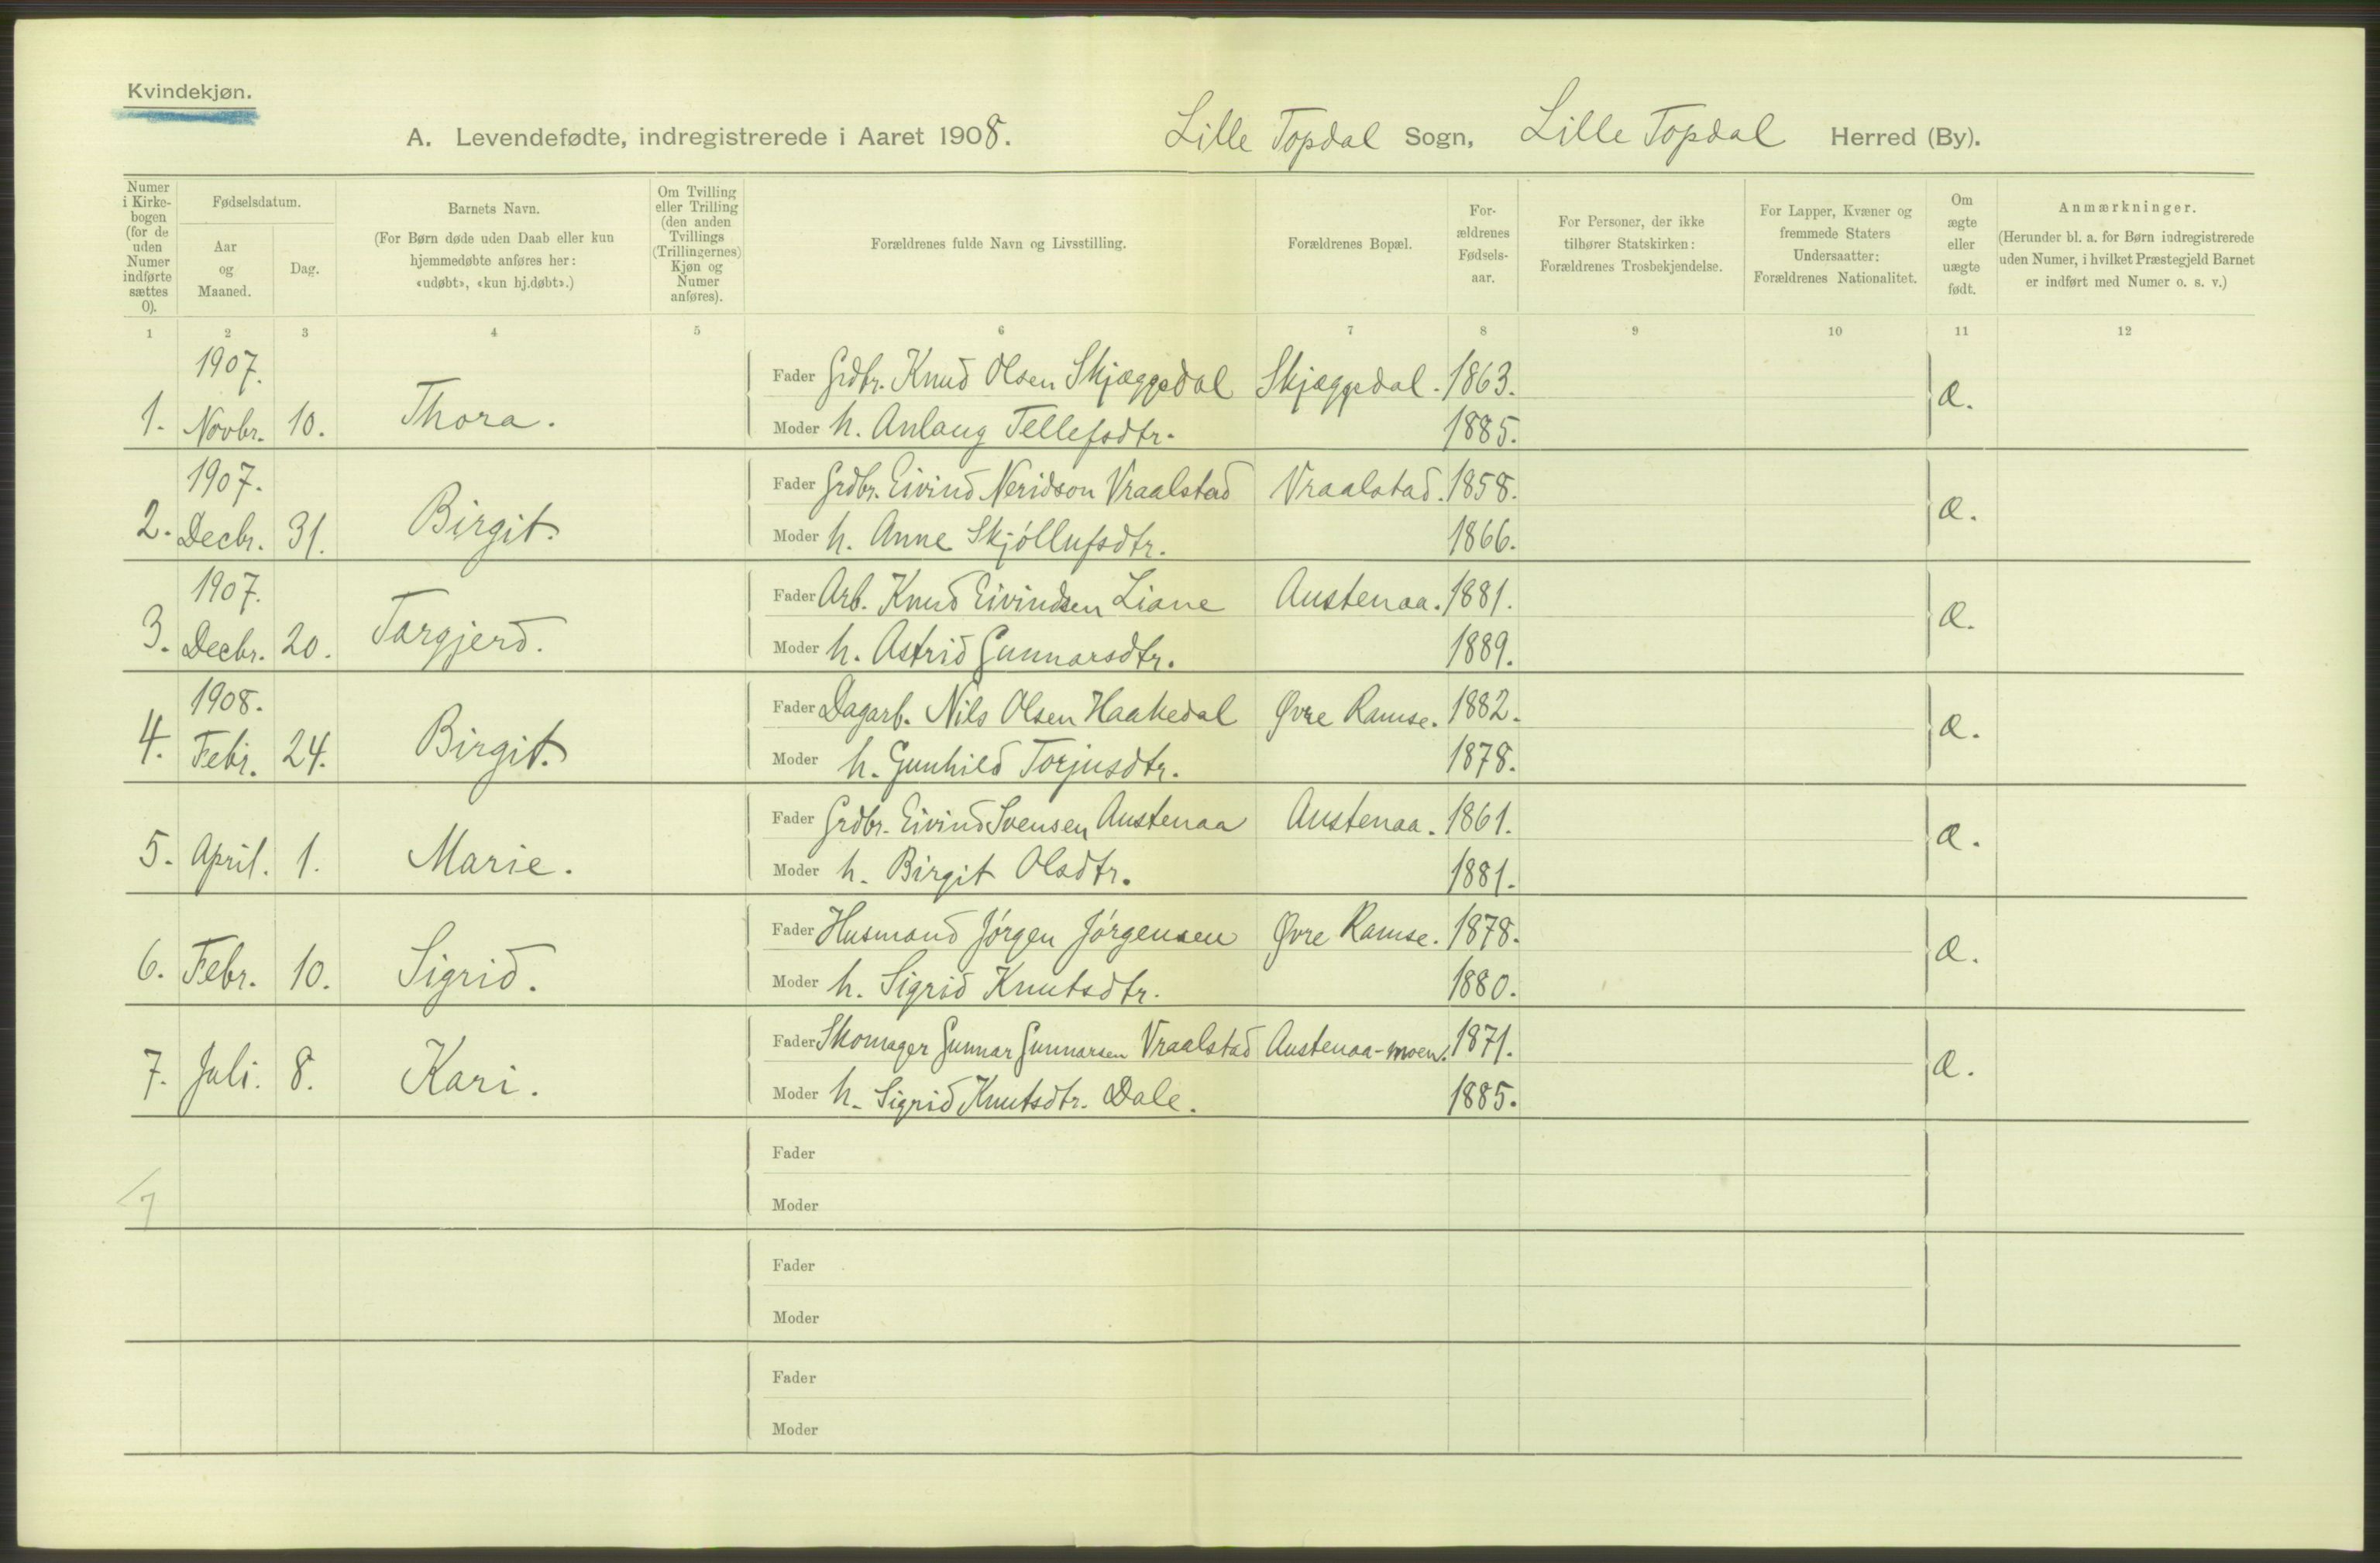 Kvindekjøn.
A. Levendefødte, indregistrerede i Aaret 1908. Lille Topdal Sogn, Lille Topdal Herred (By).
Numer i Kirkebogen (for de uden Numer indførte sættes 0).
Fødselsdatum.
Aar og Maaned.
Dag.
Barnets Navn.
(For Børn døde uden Daab eller kun hjemmedøbte anføres her: «udøbt», «kun hj.døbt».)
Om Tvilling eller Trilling (den anden Tvillings (Trillingernes) Kjøn og Numer anføres).
Forældrenes fulde Navn og Livsstilling.
Forældrenes Bopæl.
Forældrenes Fødselsaar.
For Personer, der ikke tilhører Statskirken: Forældrenes Trosbekjendelse.
For Lapper, Kvæner og fremmede Staters Undersaatter: Forældrenes Nationalitet.
Om ægte eller uægte født.
Anmærkninger.
(Herunder bl. a. for Børn indregistrerede uden Numer, i hvilket Præstegjeld Barnet er indført med Numer o. s. v.)
1 2 3 4 5 6 7 8 9 10 11 12
1907.
Fader Grdbr. Knud Olsen Skjæggedal Skjæggedal. 1863.
1. Novbr. 10. Thora. æ.
Moder h. Anlaug Tellefsdtr. 1885.
1907.
Fader Grdbr. Eivind Neridson Vraalstad Vraalstad. 1858.
2. Decbr. 31. Birgit. æ.
Moder h. Anne Skjöllufsdtr. 1866.
1907.
Fader Arb. Knud Eivindsen Liane Austenaa. 1881.
3. Decbr. 20. Targjerd. æ.
Moder h. Astrid Gunnarsdtr. 1889.
1908.
Fader Dagarb. Nils Olsen Haakedal Øvre Ramse. 1882.
4. Febr. 24. Birgit. æ.
Moder h. Gunhild Torjusdtr. 1878.
Fader Grdbr. Eivind Svensen Austenaa Austenaa. 1861.
5. April. 1. Marie. æ.
Moder h. Birgit Olsdtr. 1881.
Fader Husmand Jörgen Jörgensen Øvre Ramse. 1878.
6. Febr. 10. Sigrid. æ.
Moder h. Sigrid Knutsdtr. 1880.
Fader Skomager Gunnar Gunnarsen Vraalstad Austenaa-moen. 1871.
7. Juli. 8. Kari. æ.
Moder h. Sigrid Knutsdtr. Dale. 1885.
Fader
7
Moder
Fader
Moder
Fader
Moder